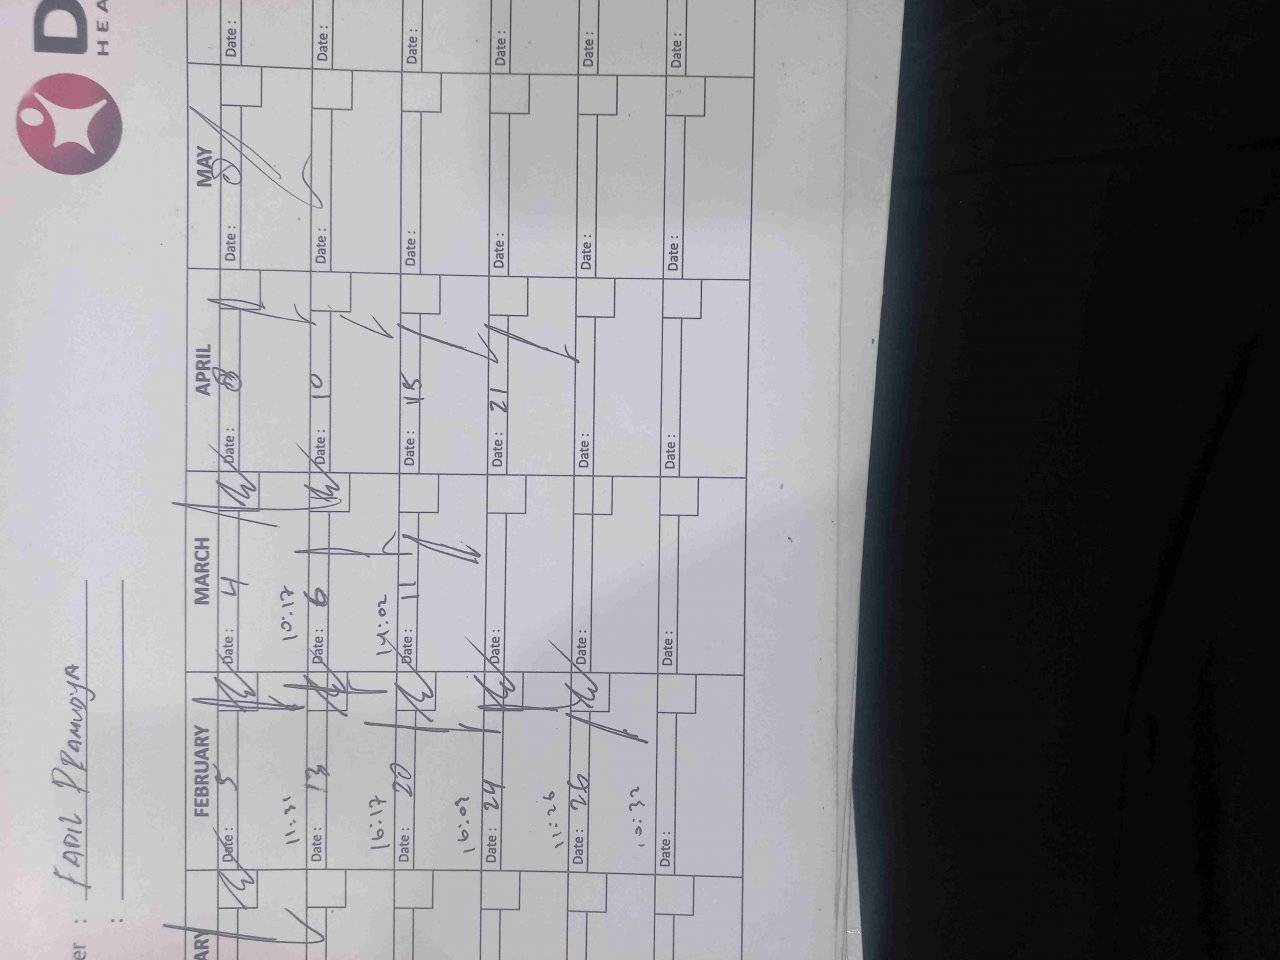 D
HEA
er : FADIL PRAMUDYA
:
ARY FEBRUARY MARCH APRIL MAY
Date : 5 Date : 4 Date : 8 Date : 8 Date :
11:31 10:17
Date : 13 Date : 6 Date : 10 Date : Date :
16:17 14:02
Date : 20 Date : 11 Date : 15 Date : Date :
16:02
Date : 24 Date : Date : 21 Date : Date :
11:26
Date : 26 Date : Date : Date : Date :
10:32
Date : Date : Date : Date : Date :